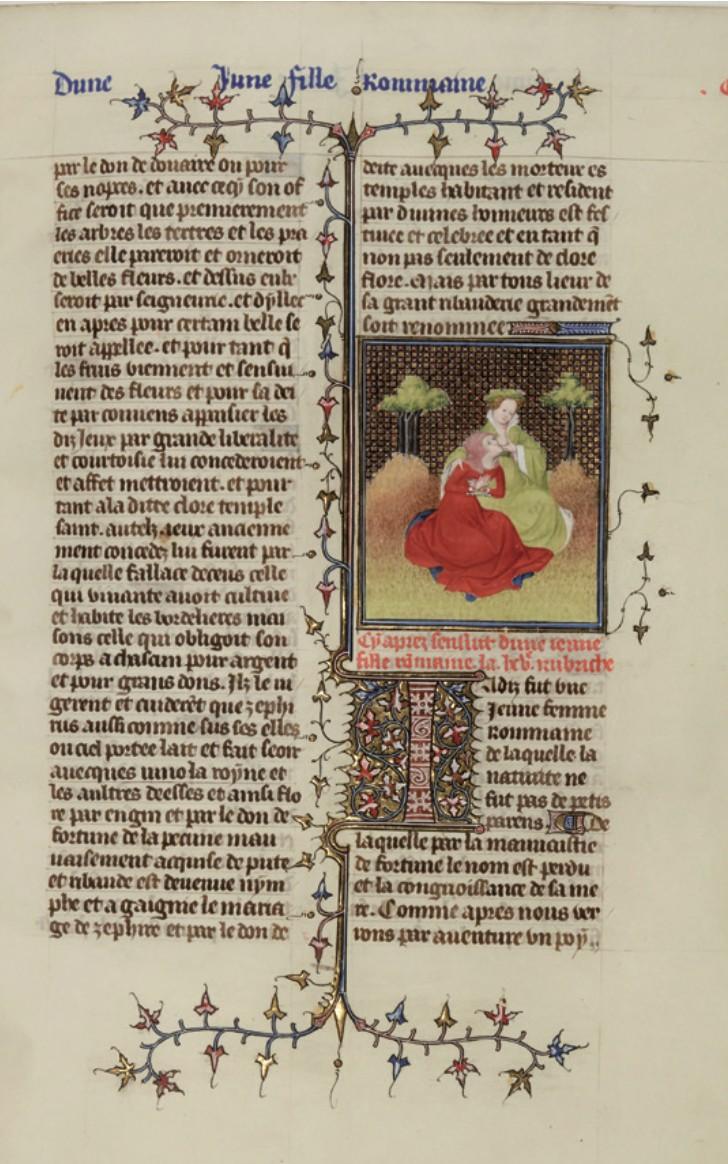 Dune Jeune fille Rommaine
par le don de douaire ou pour
ses nopces. et avec cecy son of
fice seroit que premierement
les arbres les tertres et les pra
eries elle pareroit et orneroit
de belles fleurs. et dessus eulx
seroit par seigneurie. et dyllec
en apres pour certain belle se
roit appellee. et pour tant q̃
les fruis viennent et sensui
uent des fleurs et pour sa dei
te par conuens appaisier les
diz Jeux par grande liberalite
et courtoisie lui concederoient
et affet mettroient. et pour
tant a la ditte clore temple
saint. autelz. Jeux ancienne
ment concedez lui furent par
la quelle fallace deceus celle
qui viuante auoit cultiue
et habite les bordelieres mai
sons celle qui obligoit son
corps a chascun pour argent
et pour grans dons. Ilz le iu
gerent et cuiderẽt que zephi
rus aussi comme sus ses elles
ou ciel portee lait et fait seoir
auecques iuno la royne et
les aultres deesses et ainsi flo
re par engin et par le don de
fortune de la pecune mau
uaisement acquise de pute
et ribaude est deuenue nym
phe et a gaigne le maria
ge de zephire et par le don de
deite auecques les morteux es
temples habitant et resident
par diuines honneurs est fes
tiuee et celebree et en tant q̃
non pas seulement de clore
flore. Mais par tous lieux de
sa grant ribauderie grandemẽt
soit renommee
Cy aprez sensuit dune ienne
fille rõmaine. la. rubriche
Jadiz fut vne
Jeune femme
Rommaine
de laquelle la
natiuite ne
fut pas de petis
parens De
laquelle par la mauuaistie
de fortune le nom est perdu
et la congnoissance de sa me
re. Comme apres nous ver
rons par auenture vn poy..